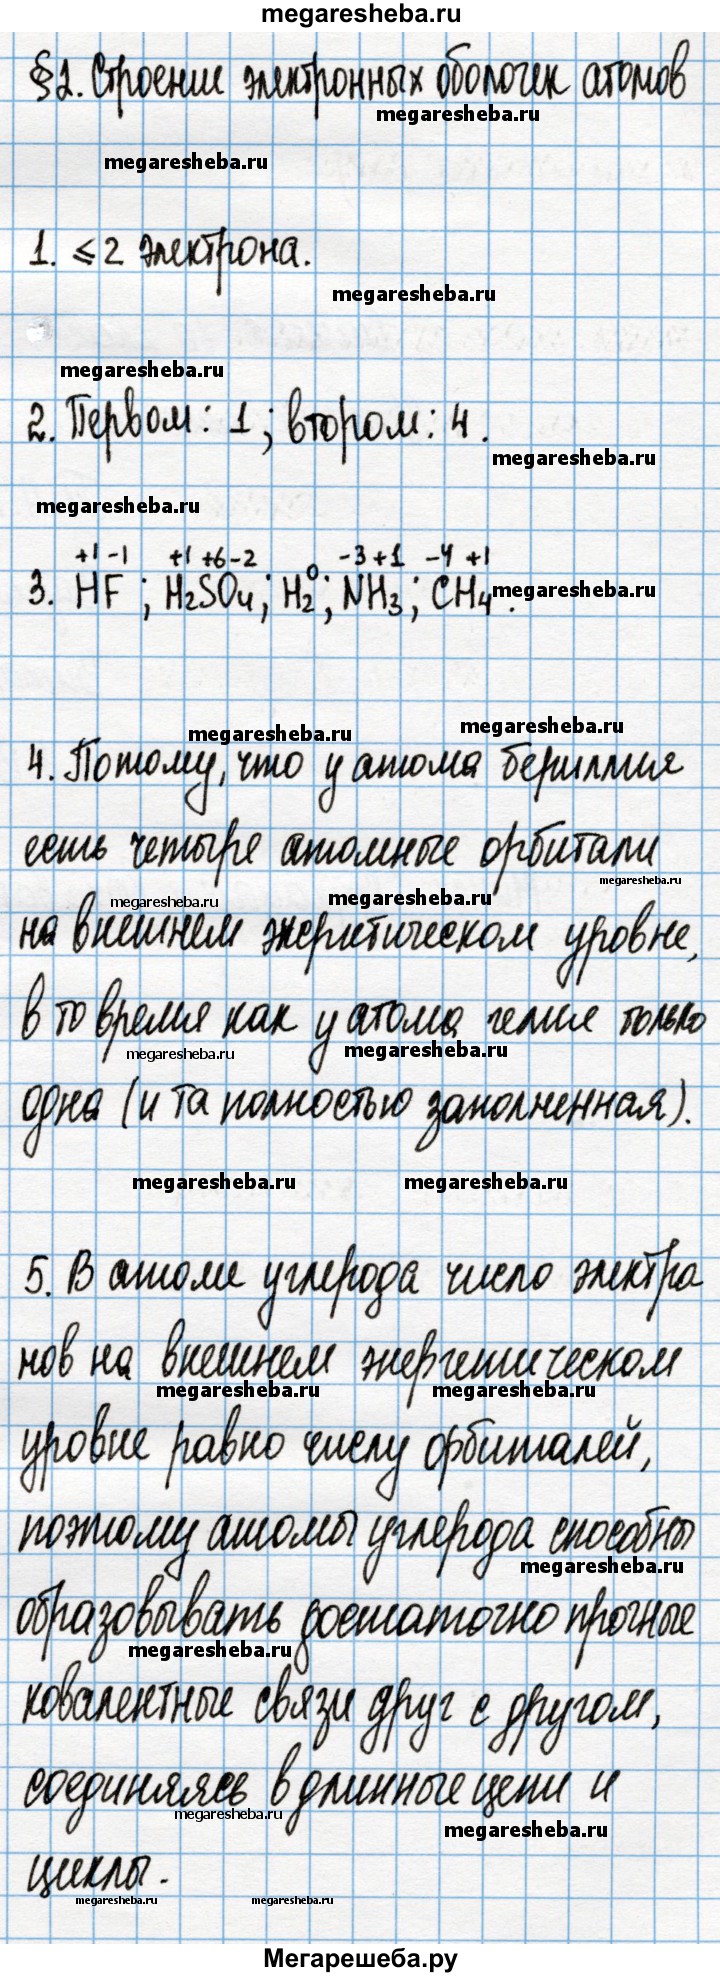 megaresheba.ru
§2. Строение электронных оболочек атомов
megaresheba.ru
megaresheba.ru
1. ≤2 электрона.
megaresheba.ru
megaresheba.ru
2. Первом: 1; втором: 4.
megaresheba.ru
megaresheba.ru
+1 -1 +1 +6 -2 -3 +1 -4 +1
3. HF; H2SO4; H2⁰; NH3; CH4.
megaresheba.ru
megaresheba.ru megaresheba.ru
4. Потому, что у атома бериллия
есть четыре атомные орбитали
megaresheba.ru megaresheba.ru megaresheba.ru
на внешнем энергетическом уровне,
в то время как у атома гелия только
megaresheba.ru megaresheba.ru
одна (и та полностью заполненная).
megaresheba.ru megaresheba.ru
5. В атоме углерода число электро
нов на внешнем энергетическом
megaresheba.ru megaresheba.ru
уровне равно числу орбиталей,
поэтому атомы углерода способны
megaresheba.ru
образовывать достаточно прочные
megaresheba.ru
ковалентные связи друг с другом,
соединяясь в длинные цепи и
megaresheba.ru megaresheba.ru
циклы.
megaresheba.ru megaresheba.ru
Мегарешеба.ру